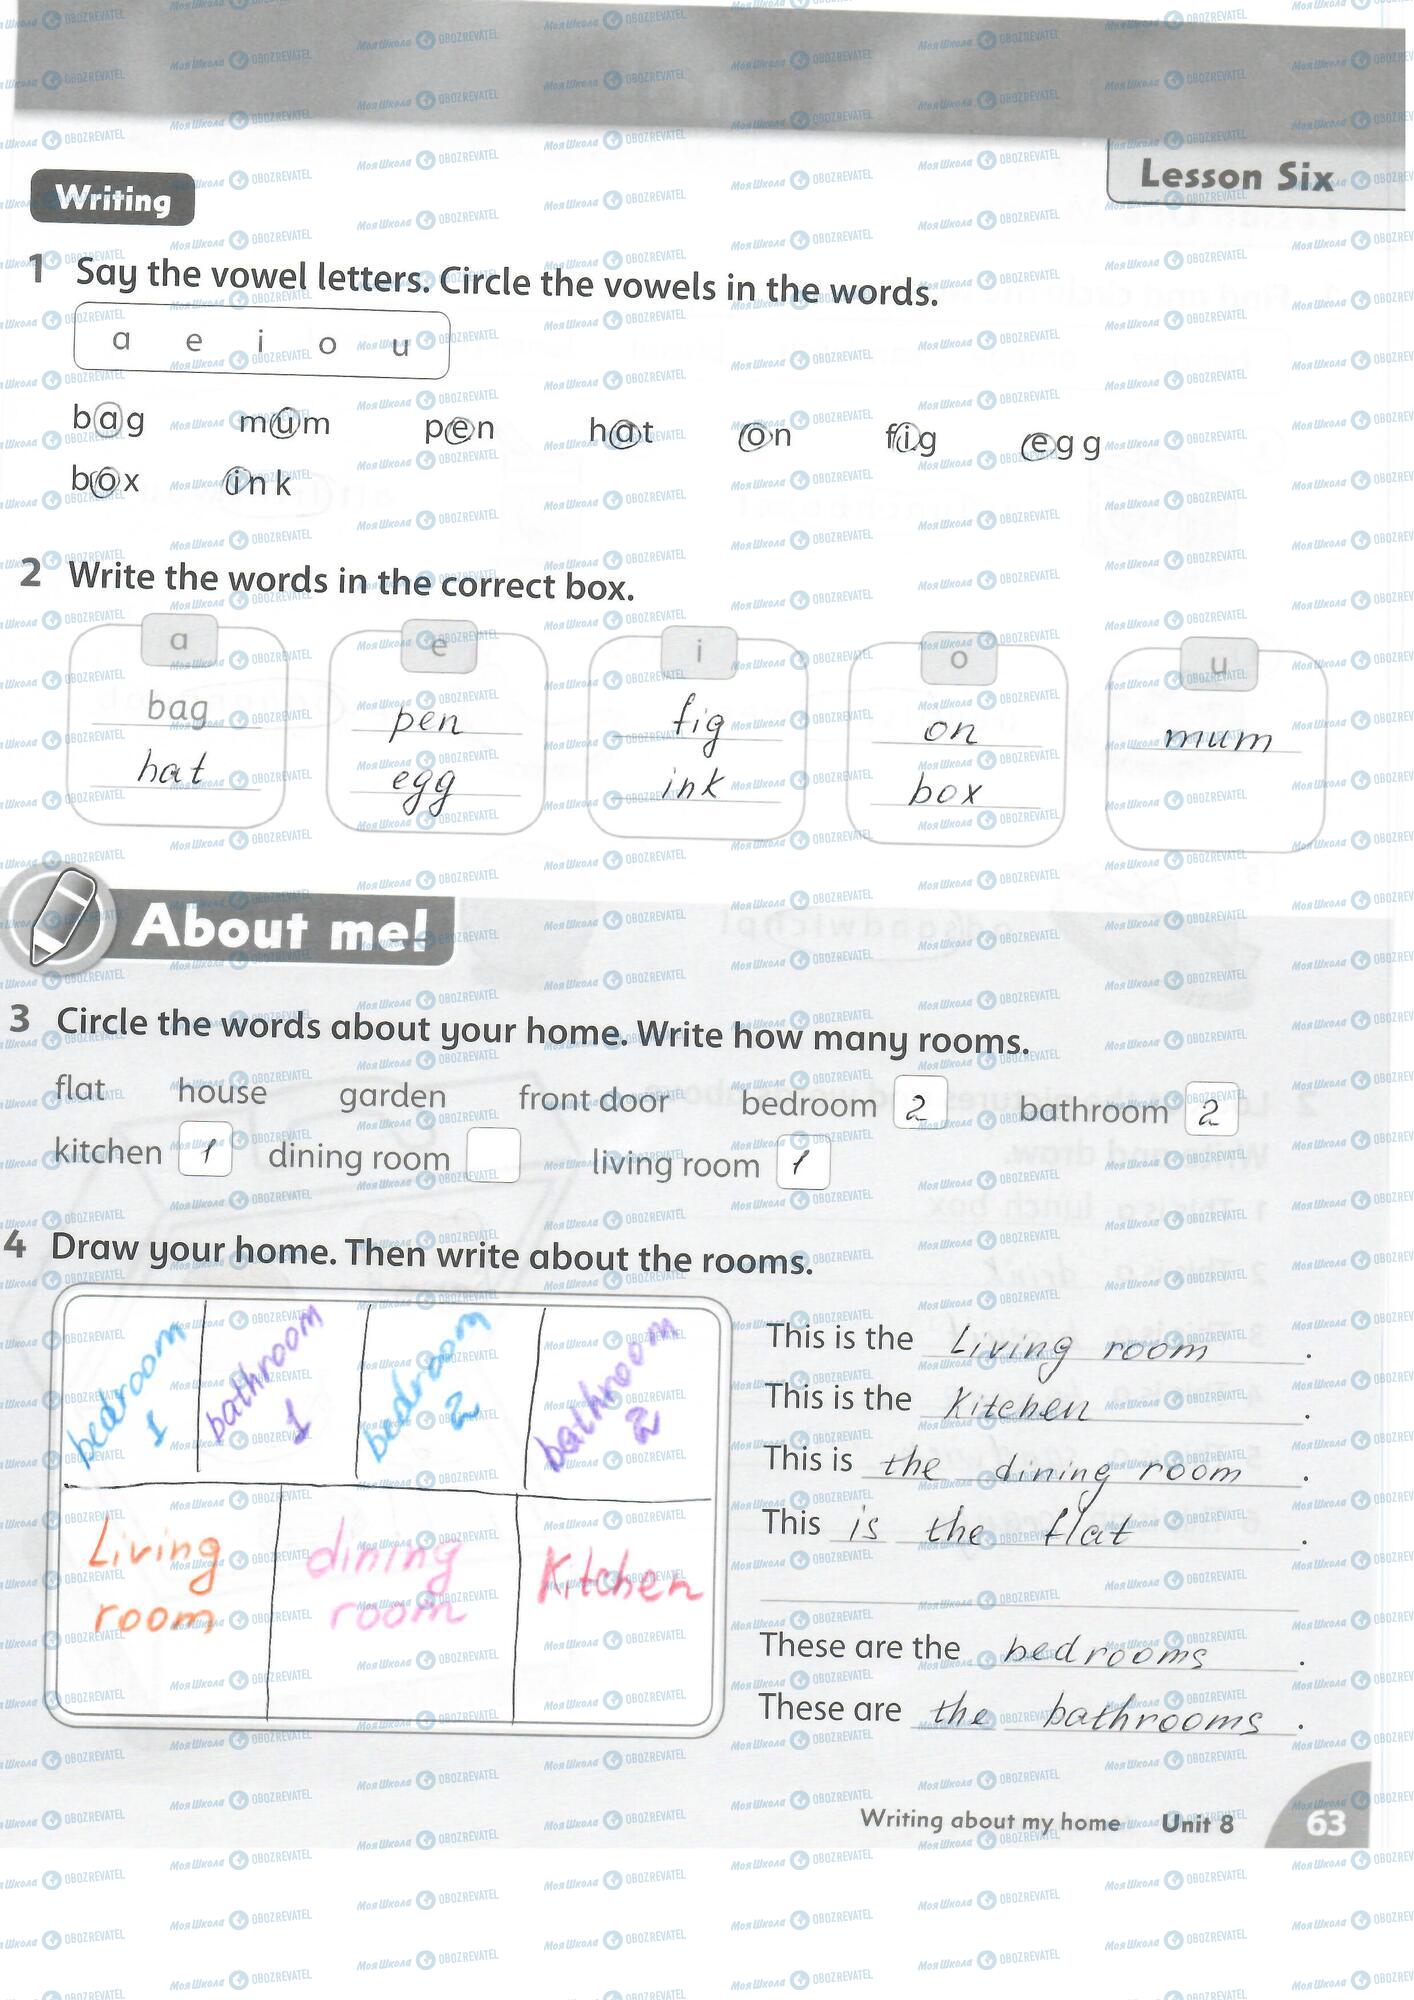 Lesson Six
Writing
1 Say the vowel letters. Circle the vowels in the words.
a e i o u
bag mum pen hat on fig egg
box ink
2 Write the words in the correct box.
a e i o u
bag pen fig on mum
hat egg ink box
About me!
3 Circle the words about your home. Write how many rooms.
flat house garden front door bedroom 2 bathroom 2
kitchen 1 dining room living room 1
4 Draw your home. Then write about the rooms.
bedroom 1 bathroom 1 bedroom 2 bathroom 2
Living room dining room Kitchen
This is the Living room.
This is the Kitchen.
This is the dining room.
This is the flat.
These are the bedrooms.
These are the bathrooms.
Writing about my home Unit 8 63
Моя Школа OBOZREVATEL